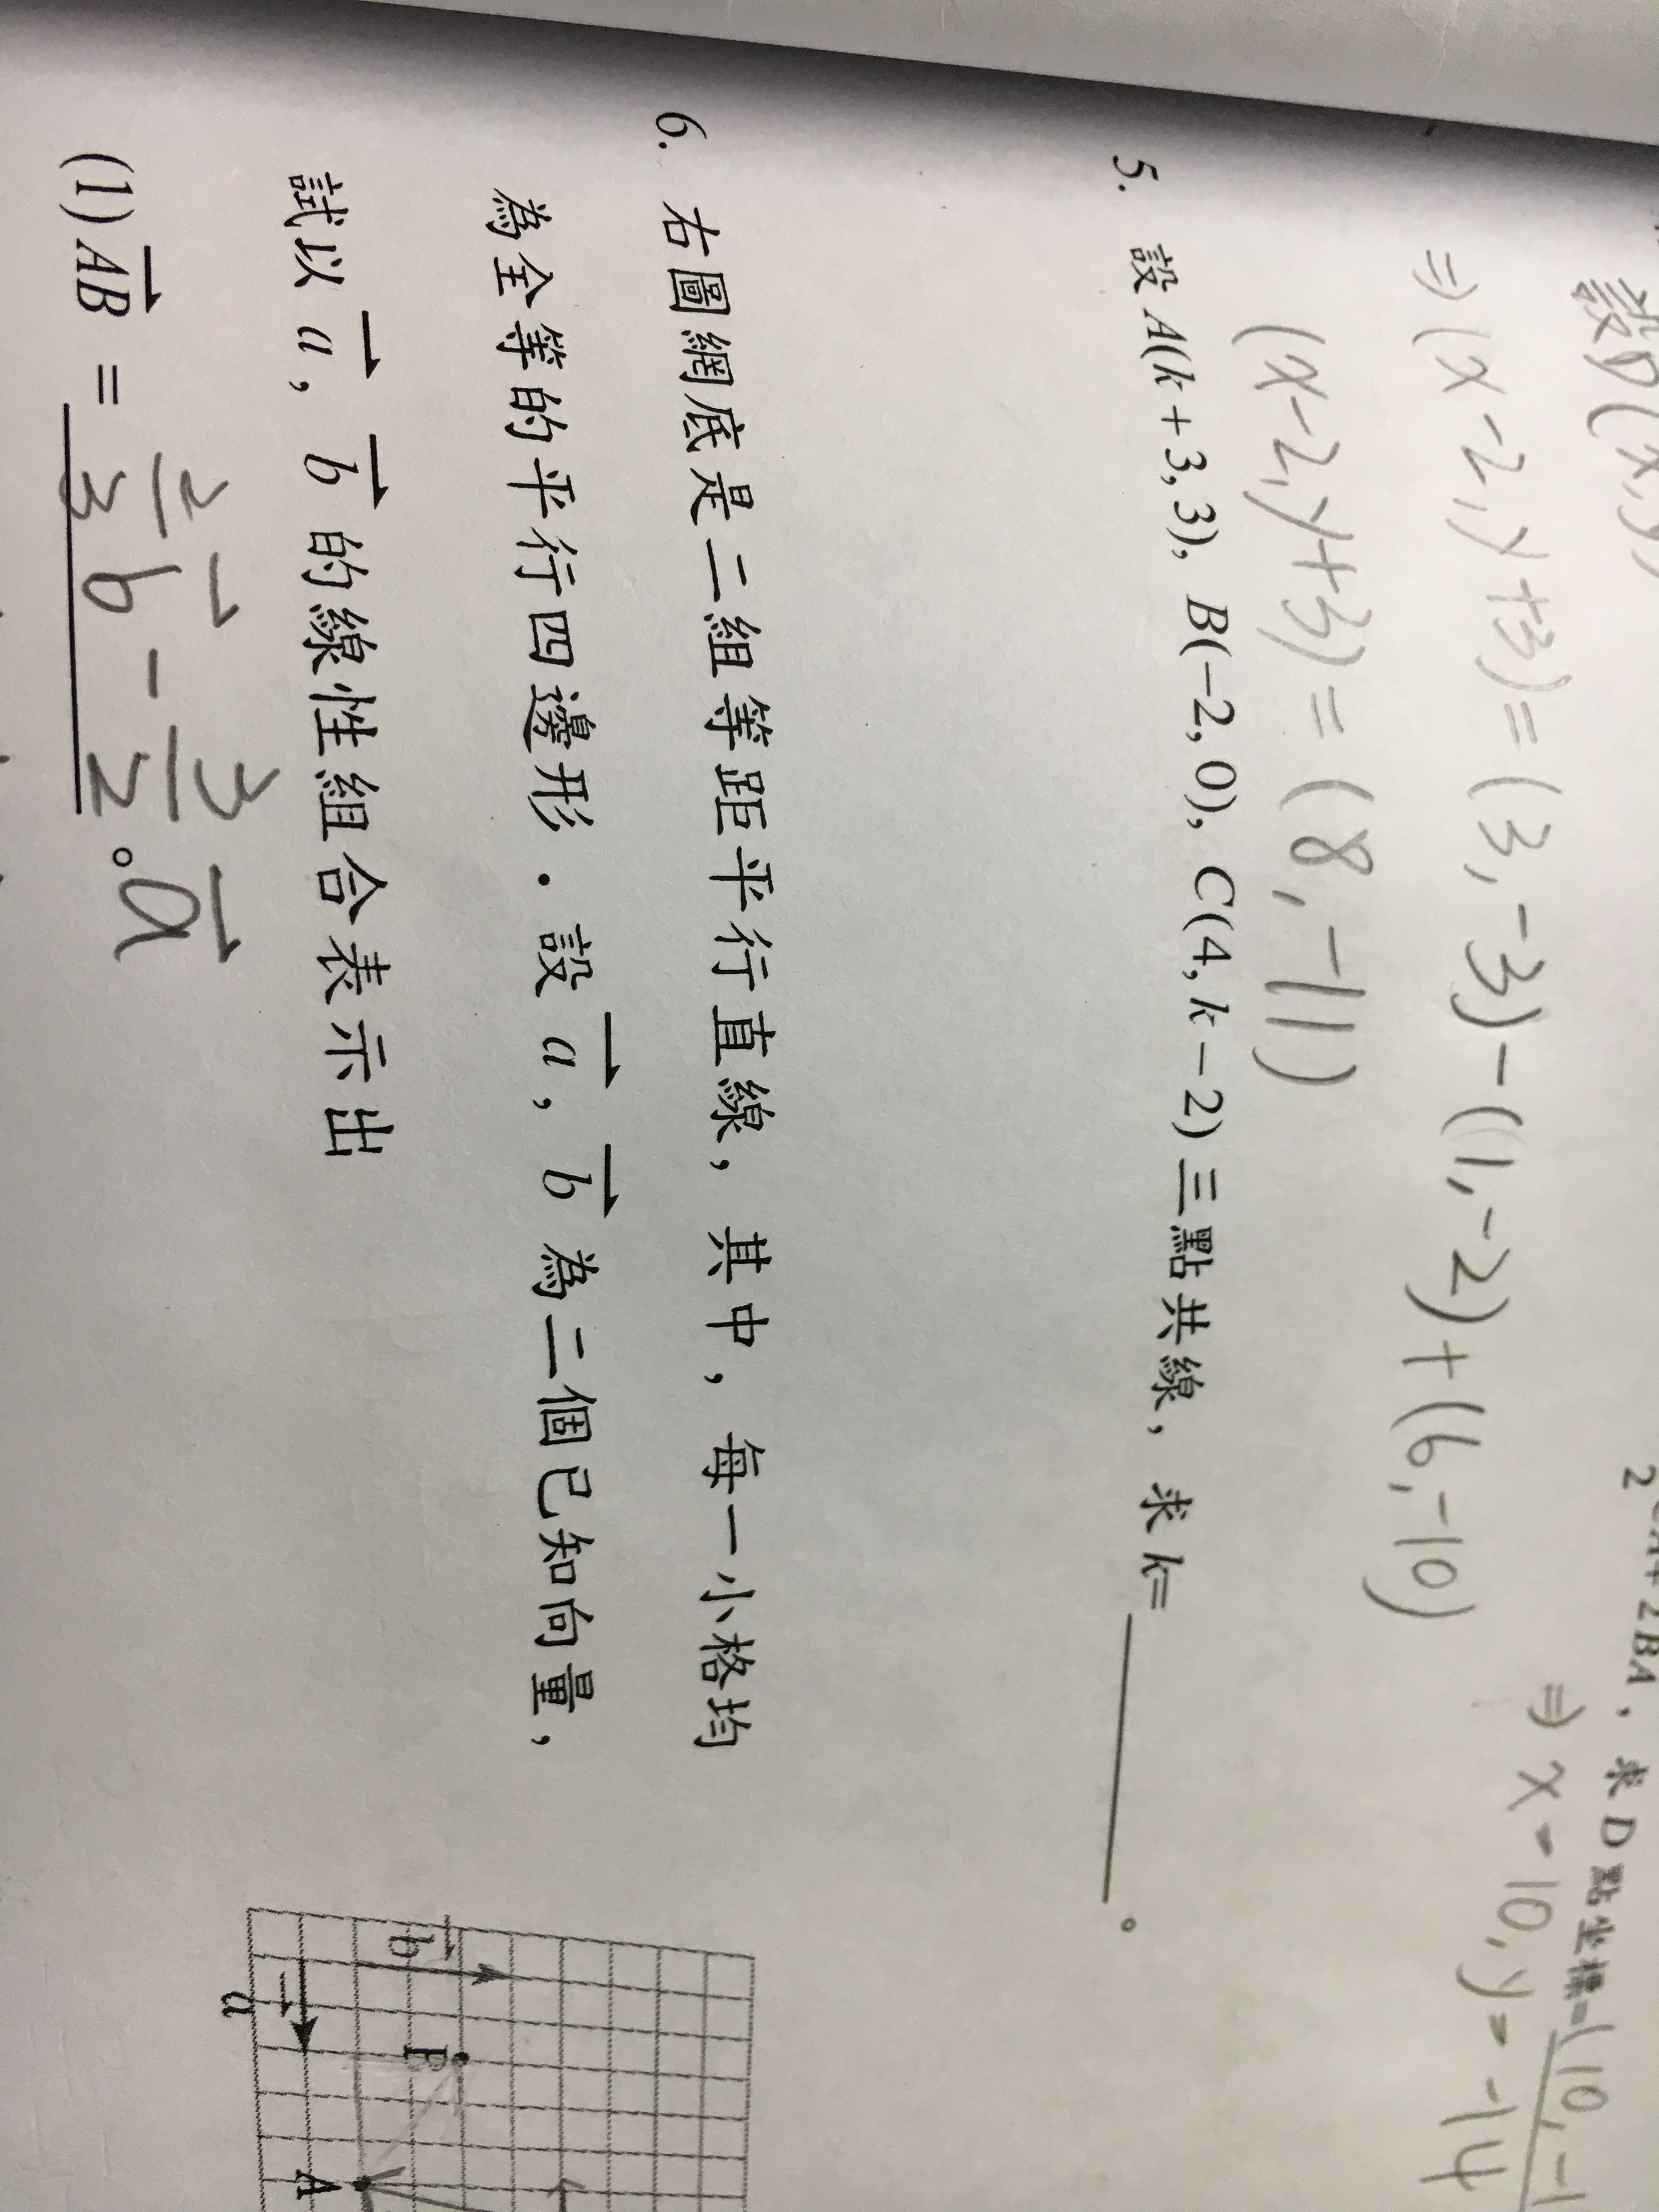 2BA，求D點坐標=(10,-1
設D(x,y)
⇒(x-2,y+3)=(3,-3)-(1,-2)+(6,-10)
⇒ x=10,y=-14
(x-2,y+3)=(8,-11)
5. 設A(k+3,3), B(-2,0), C(4,k-2)三點共線，求k=________。
6. 右圖網底是二組等距平行直線，其中，每一小格均
為全等的平行四邊形．設a⃗，b⃗為二個已知向量，
試以a⃗，b⃗的線性組合表示出
(1)AB⃗ = 2/3 b⃗ - 3/2 a⃗。
b⃗
a⃗
B
A